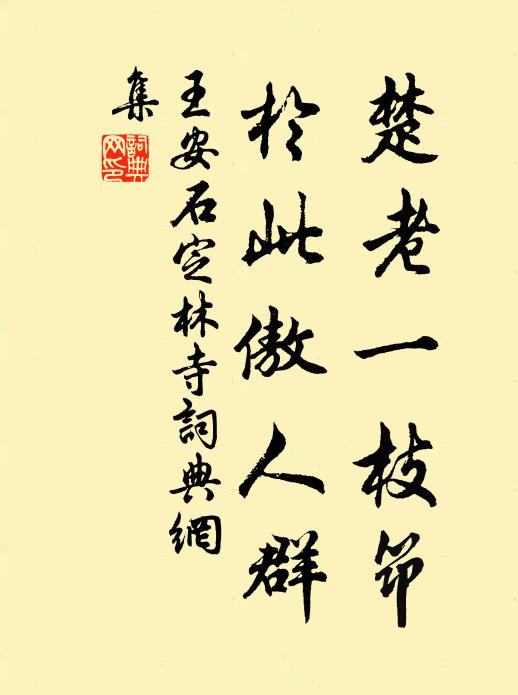 楚老一枝筇
於此傲人群
王安石定林寺詞典網
集
詞典
网印